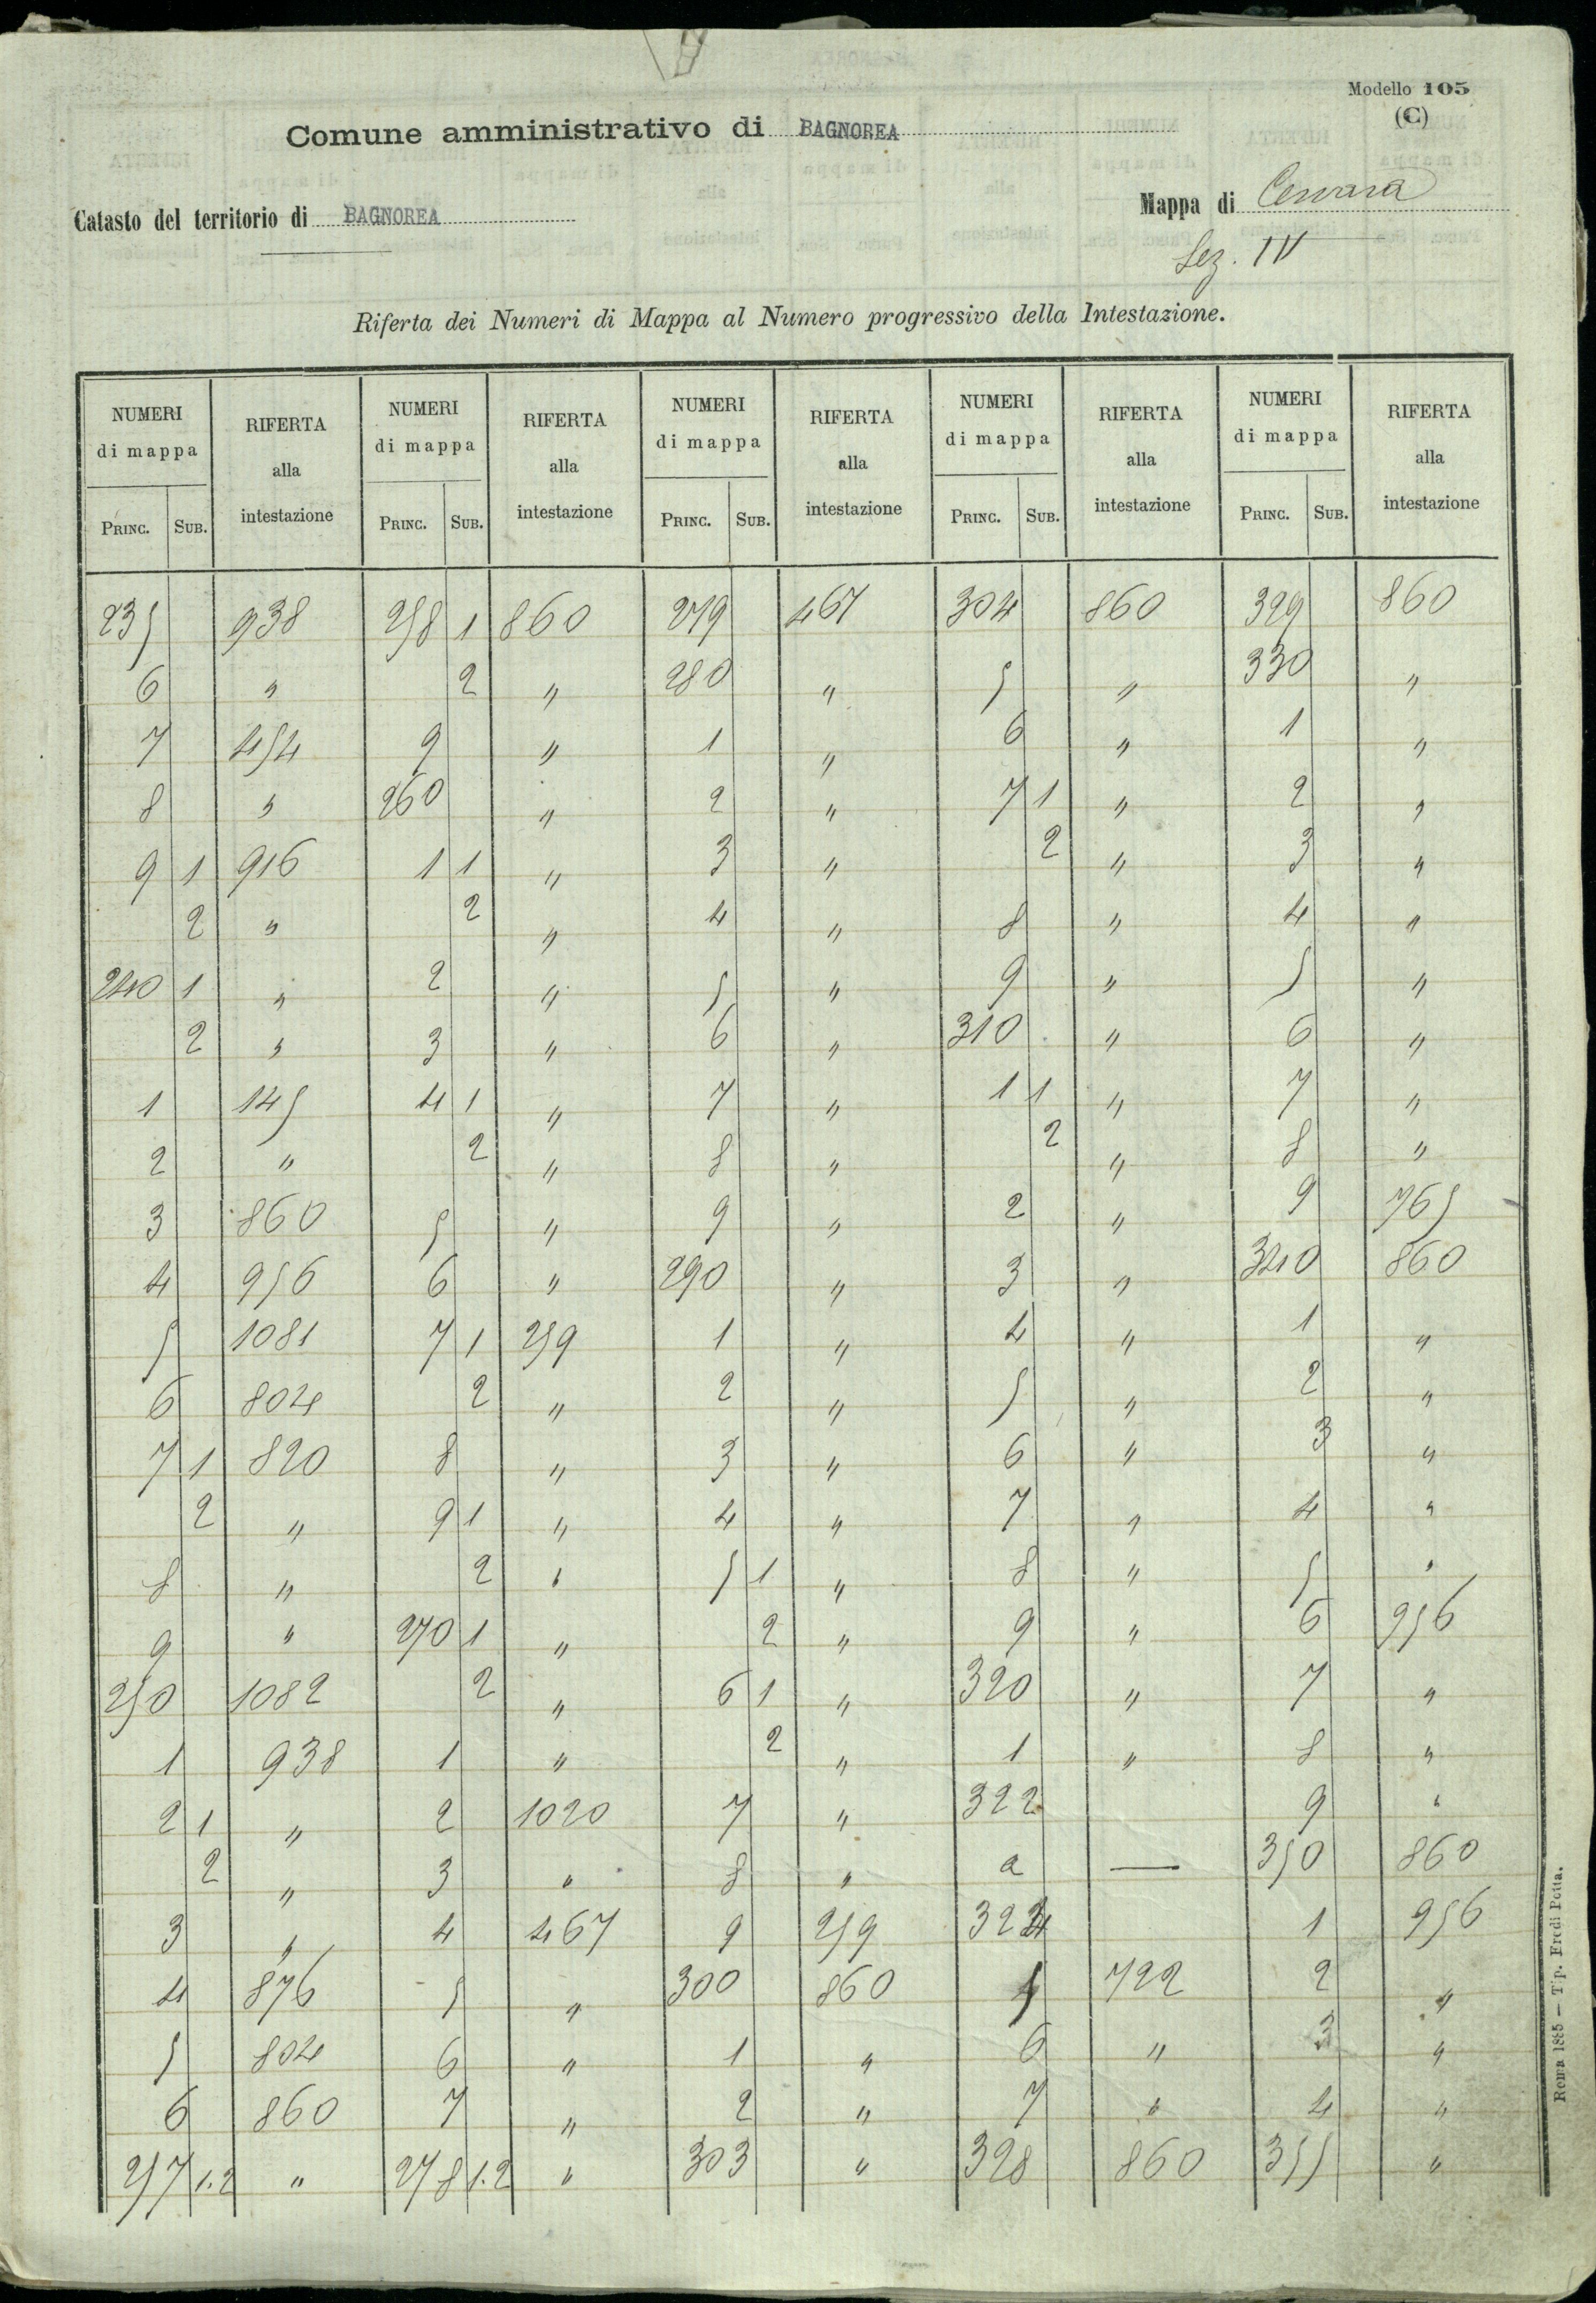 Modello 105
(C)
Comune amministrativo di BAGNOREA
Catasto del territorio di BAGNOREA
Mappa di Cervara
Sez. IV
Riferta dei Numeri di Mappa al Numero progressivo della Intestazione.
NUMERI di mappa RIFERTA alla intestazione NUMERI di mappa RIFERTA alla intestazione NUMERI di mappa RIFERTA alla intestazione NUMERI di mappa RIFERTA alla intestazione NUMERI di mappa RIFERTA alla intestazione
PRINC. SUB. PRINC. SUB. PRINC. SUB. PRINC. SUB. PRINC. SUB.
235 938 258 1 860 279 467 304 860 329 860
6 " 2 " 280 " 5 " 330 "
7 454 9 " 1 " 6 " 1 "
8 " 260 " 2 " 7 1 " 2 "
9 1 916 1 1 " 3 " 2 " 3 "
2 " 2 " 4 " 8 " 4 "
240 1 " 2 " 5 " 9 " 5 "
2 " 3 " 6 " 310 " 6 "
1 145 4 1 " 7 " 1 1 " 7 "
2 " 2 " 8 " 2 " 8 "
3 860 5 " 9 " 2 " 9 765
4 956 6 " 290 " 3 " 340 860
5 1081 7 1 259 1 " 4 " 1 "
6 804 2 " 2 " 5 " 2 "
7 1 820 8 " 3 " 6 " 3 "
2 " 9 1 " 4 " 7 " 4 "
8 " 2 " 5 1 " 8 " 5 "
9 " 270 1 " 2 " 9 " 6 956
250 1082 2 " 6 1 " 320 " 7 "
1 938 1 " 2 " 1 " 8 "
2 1 " 2 1020 7 " 322 9 "
2 " 3 " 8 " a — 350 860
3 " 4 467 9 259 324 1 956
4 876 5 " 300 860 5 722 2 "
5 804 6 " 1 " 6 " 3 "
6 860 7 " 2 " 7 " 4 "
257 1.2 " 278 1.2 " 303 " 328 860 355 "
Roma 1885 — Tip. Eredi Botta.